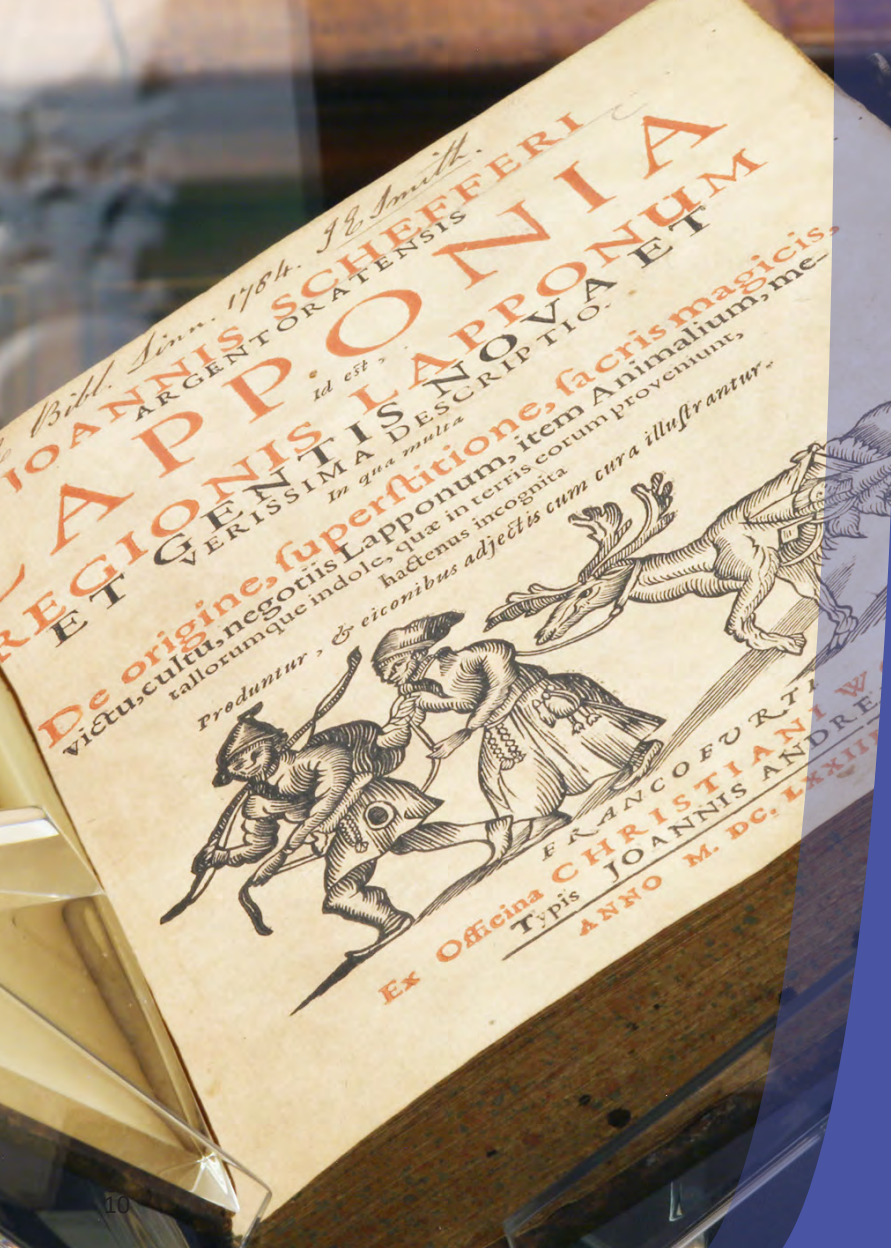 Bibl. Linn. 1784. J E Smith.
JOANNIS SCHEFFERI
ARGENTORATENSIS
LAPPONIA
Id est,
REGIONIS LAPPONUM
ET GENTIS NOVA ET
VERISSIMA DESCRIPTIO.
In qua multa
De origine, ſuperſtitione, ſacris magicis,
victu, cultu, negotiis Lapponum, item Animalium, me-
tallorumque indole, quæ in terris eorum proveniunt,
hactenus incognita
Produntur, & eiconibus adjectis cum cura illuſtrantur.
FRANCOFURTI
Ex Officina CHRISTIANI W
Typis JOANNIS ANDRE
ANNO M. DC. LXXIII
10